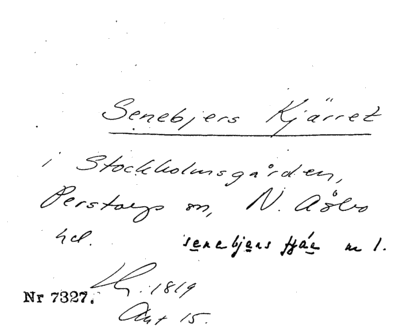 Senebjers Kjärret
i Stockholmsgården,
Perstorps sn, N. Åsbo
hd. senebjens m 1.
1819
Nr 7327.
Akt 15.